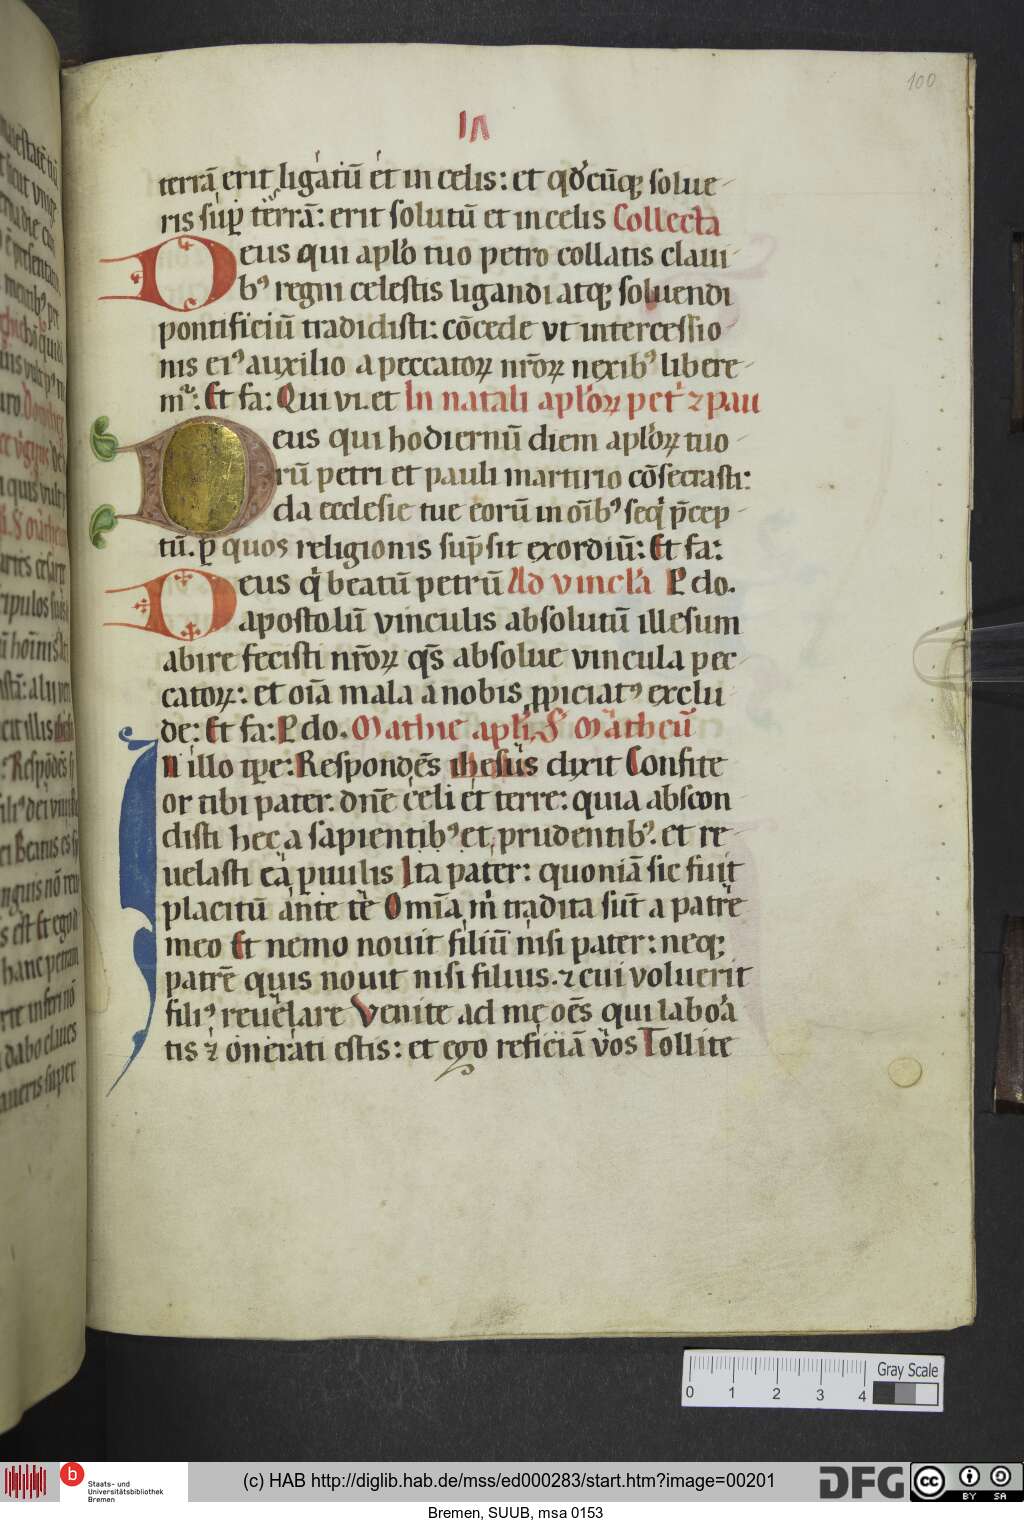 100
IN
terrā erit ligatū et in celis: et qdcūq; solue-
ris sup̄ terrā: erit solutū et in celis Collecta
Deus qui aplo tuo petro collatis claui-
bꝰ regni celestis ligandi atq; soluendi
pontificiū tradidisti: cōcede vt intercessio-
nis eiꝰ auxilio a peccatoꝝ nr̄oꝝ nexibꝰ libere-
mᷣ: Et fa: Qui vi. et In natali aploꝝ pet' ⁊ pau
Deus qui hodiernū diem aploꝝ tuo-
rū petri et pauli martirio cōsecrasti:
da ecclesie tue eorū in oīb' seq̇ p̄cep-
tū. ꝑ quos religionis sūpsit exordiū: Et fa:
Deus q̇ beatū petrū Ad vincla P do.
apostolū vinculis absolutū illesum
abire fecisti nr̄oꝝ qs̄ absolue vincula pec-
catoꝝ: et oīa mala a nobis ꝓpiciatꝰ exclu-
de: Et fa: P do. Mathie apli, S' Matheū
In illo tp̄e: Respondēs ihesus dixit Confite
or tibi pater. dn̄e celi et terre: quia abscon-
disti hec a sapientibꝰ et prudentibꝰ. et re-
uelasti ea ꝑuulis Ita pater: quoniā sic fuit
placitū ante te Omīa m' tradita sūt a patre
meo Et nemo nouit filiū nisi pater: neq;
patrē quis nouit nisi filius. ⁊ cui voluerit
filiꝰ reuelare Venite ad me oēs qui laboa
tis ⁊ onerati estis: et ego reficiā vos Tollite
0 1 2 3 4 Gray Scale
b Staats- und
Universitätsbibliothek
Bremen
(c) HAB http://diglib.hab.de/mss/ed000283/start.htm?image=00201
DFG
cc BY SA
Bremen, SUUB, msa 0153